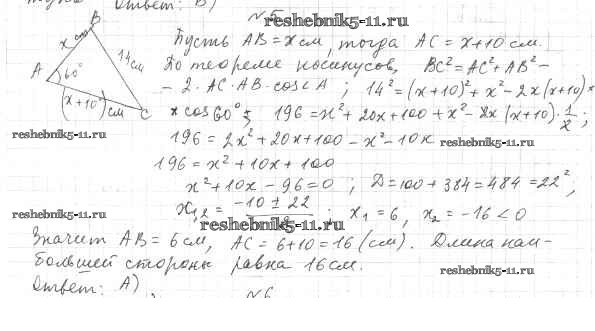 Ответ: В)
№5
reshebnik5-11.ru
B
x см
14 см
A
60°
(x+10) см
C
Пусть AB = x см, тогда AC = x+10 см.
По теореме косинусов, BC² = AC² + AB² −
− 2·AC·AB·cos∠A ; 14² = (x+10)² + x² − 2x(x+10)×
× cos60° ; 196 = x² + 20x + 100 + x² − 2x(x+10)·1/2 ;
reshebnik5-11.ru
196 = 2x² + 20x + 100 − x² − 10x
reshebnik5-11.ru
196 = x² + 10x + 100
x² + 10x − 96 = 0 ; D = 100 + 384 = 484 = 22² ,
reshebnik5-11.ru
x₁,₂ = (−10 ± 22)/2 ; x₁ = 6, x₂ = −16 < 0
reshebnik5-11.ru
Значит AB = 6 см, AC = 6+10 = 16 (см). Длина наи-
большей стороны равна 16 см.
reshebnik5-11.ru
Ответ: А)
№6